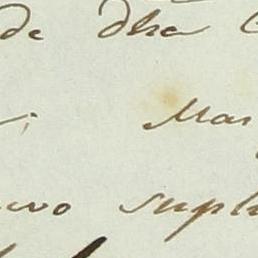 de dha
; Mar
uvo supli